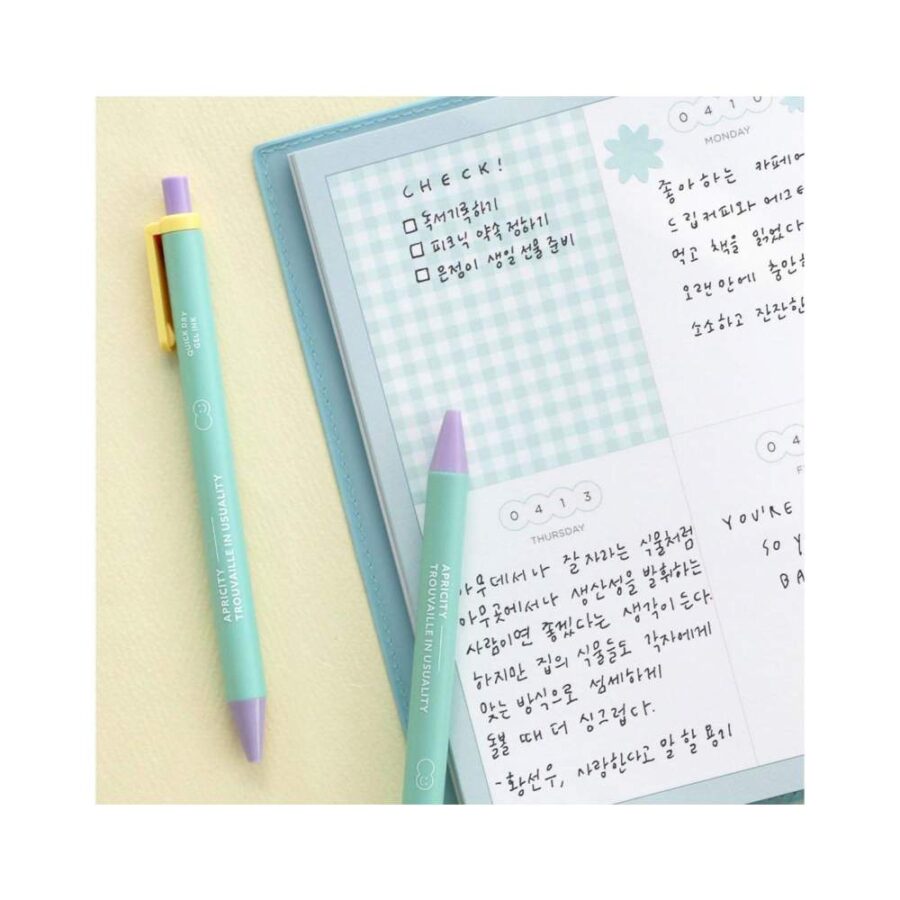 QUICK DRY
GEL INK
APRICITY
TROUVAILLE IN USUALITY
APRICITY
TROUVAILLE IN USUALITY
CHECK!
독서기록하기
피크닉 약속 정하기
은정이 생일 선물 준비
0410
MONDAY
좋아하는 카페에
드립커피와 에그
먹고 책을 읽었다
오랜만에 충만
소소하고 잔잔한
0413
THURSDAY
아무데서나 잘 자라는 식물처럼
아무곳에서나 생산성을 발휘하는
사람이면 좋겠다는 생각이 든다.
하지만 집의 식물들도 각자에게
맞는 방식으로 섬세하게
돌볼 때 더 싱그럽다.
-황선우, 사랑한다고 말할 용기
04
F
YOU'RE
SO Y
BA